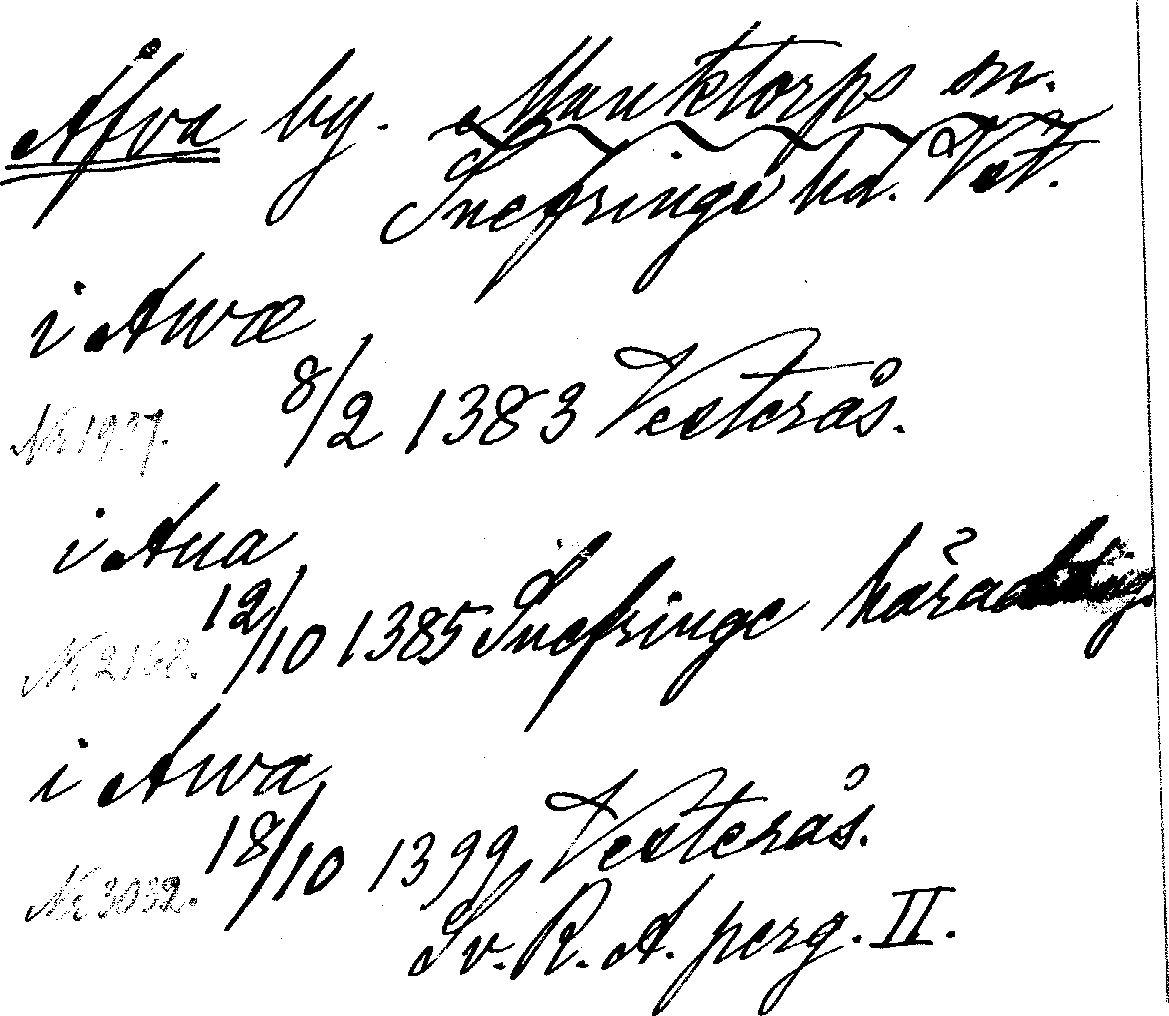 Åfva by. Munktorps sn.
Snefringe hd. Vstl.
i Awæ
8/2 1383 Vesterås.
Nr 1937.
i Aua
12/10 1385 Snefringe härad
Nr 2168.
i Awa
18/10 1399, Vesterås.
Nr 3032.
Sv. R. A. perg. II.